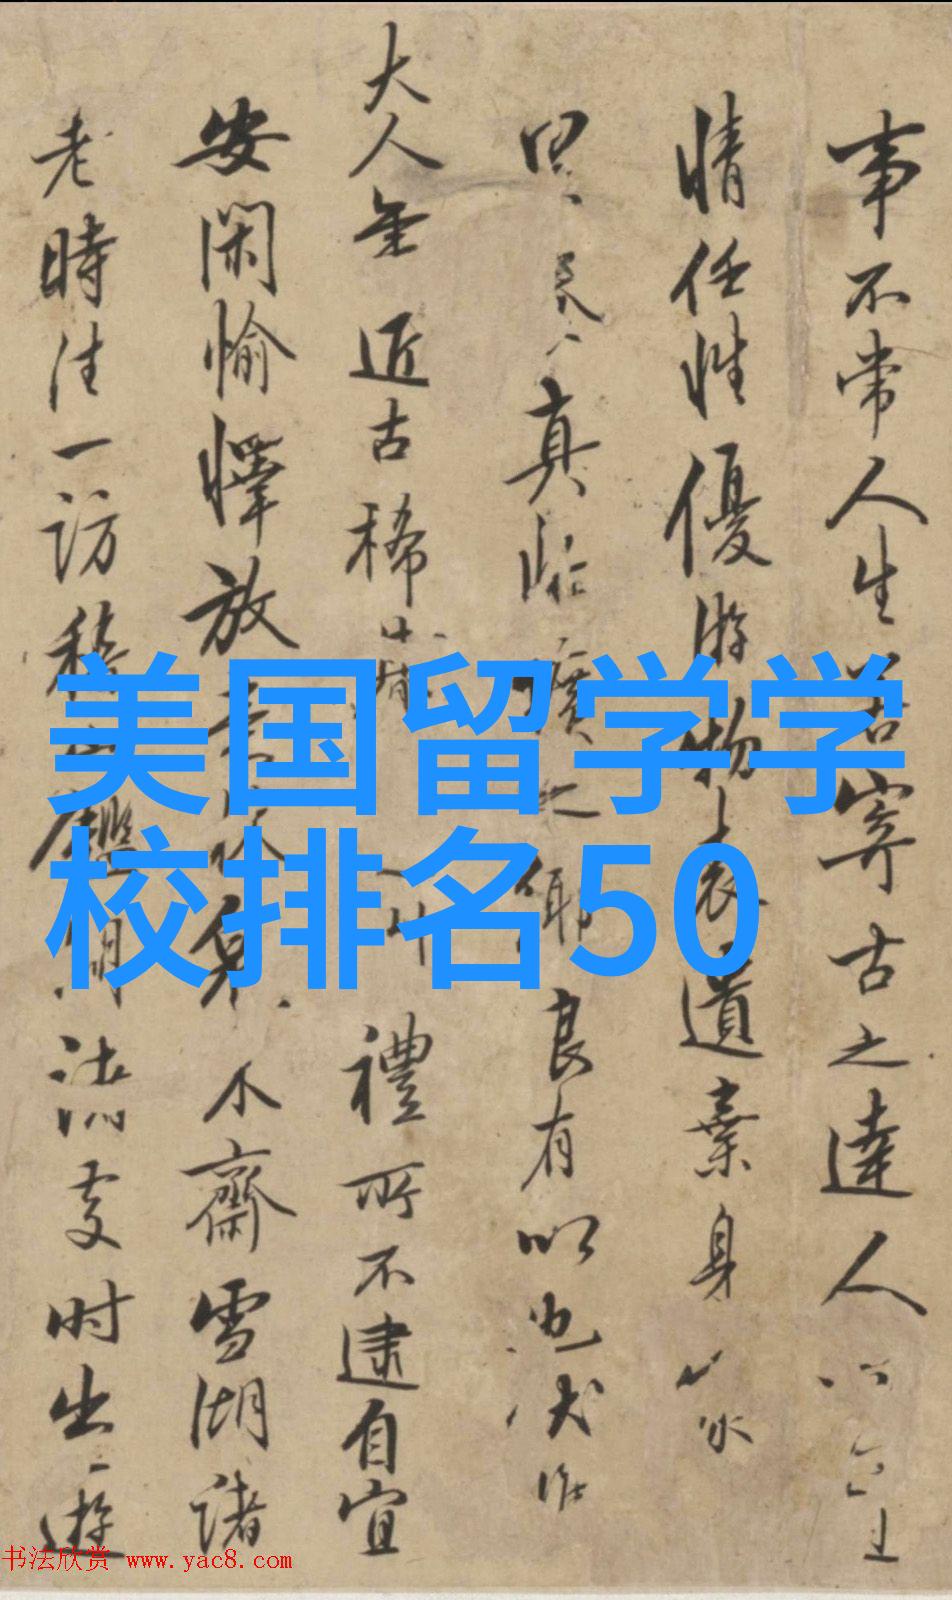 事不常人生若寄古之達人
情任性優游物表遺棄身
真臨 之鄉良有以也
大人年近古稀 禮所不逮自宜
安閑愉懌放 木齋雪湖諸
老時往一訪稽山鑑湖諸 時出遊
美国留学学
校排名50
书法欣赏 www.yac8.com